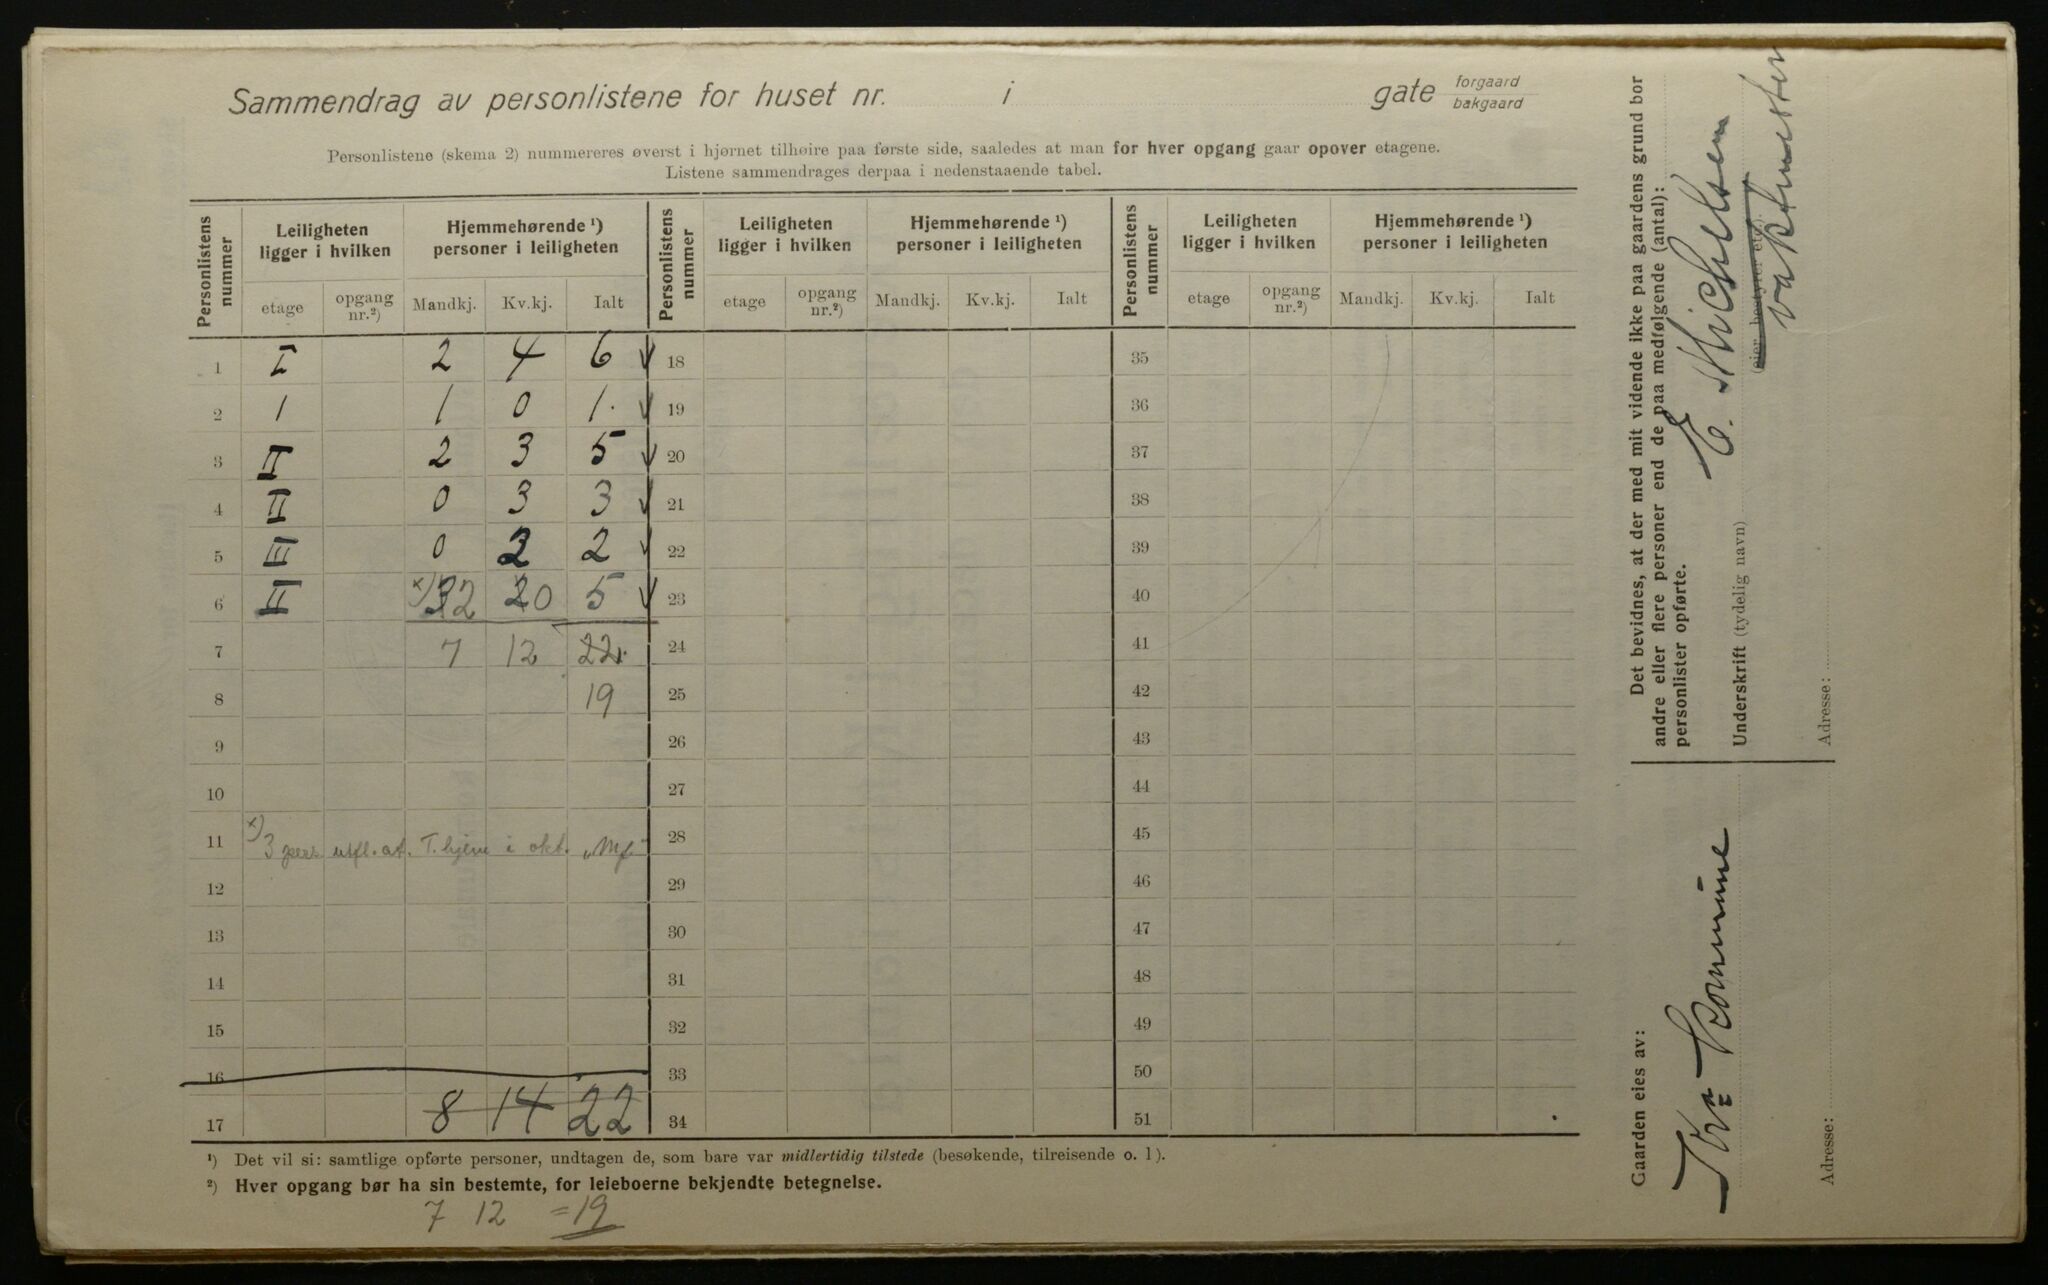 Sammendrag av personlistene for huset nr. i gate forgaard bakgaard
Personlistene (skema 2) nummereres øverst i hjørnet tilhøire paa første side, saaledes at man for hver opgang gaar opover etagene.
Listene sammendrages derpaa i nedenstaaende tabel.
Personlistens nummer Leiligheten ligger i hvilken Hjemmehørende ¹) personer i leiligheten Personlistens nummer Leiligheten ligger i hvilken Hjemmehørende ¹) personer i leiligheten Personlistens nummer Leiligheten ligger i hvilken Hjemmehørende ¹) personer i leiligheten
etage opgang nr.²) Mandkj. Kv.kj. Ialt etage opgang nr.²) Mandkj. Kv.kj. Ialt etage opgang nr.²) Mandkj. Kv.kj. Ialt
1 I 2 4 6 18 35
2 1 1 0 1. 19 36
3 II 2 3 5 20 37
4 II 0 3 3 21 38
5 III 0 2 2 22 39
6 II x) 2 0 5 23 40
7 7 12 22. 24 41
8 19 25 42
9 26 43
10 27 44
11 x) 3 pers. utfl. at. T. hjem i okt. 28 45
12 29 46
13 30 47
14 31 48
15 32 49
16 33 50
17 8 14 22 34 51
¹) Det vil si: samtlige opførte personer, undtagen de, som bare var midlertidig tilstede (besøkende, tilreisende o. l).
²) Hver opgang bør ha sin bestemte, for leieboerne bekjendte betegnelse.
7 12 = 19
Det bevidnes, at der med mit vidende ikke paa gaardens grund bor
andre eller flere personer end de paa medfølgende (antal):
personlister opførte.
E. Michelsen
Underskrift (tydelig navn)
(eier, bestyrer etc.)
vaktmester
Adresse:
Gaarden eies av:
Kra Kommune
Adresse: